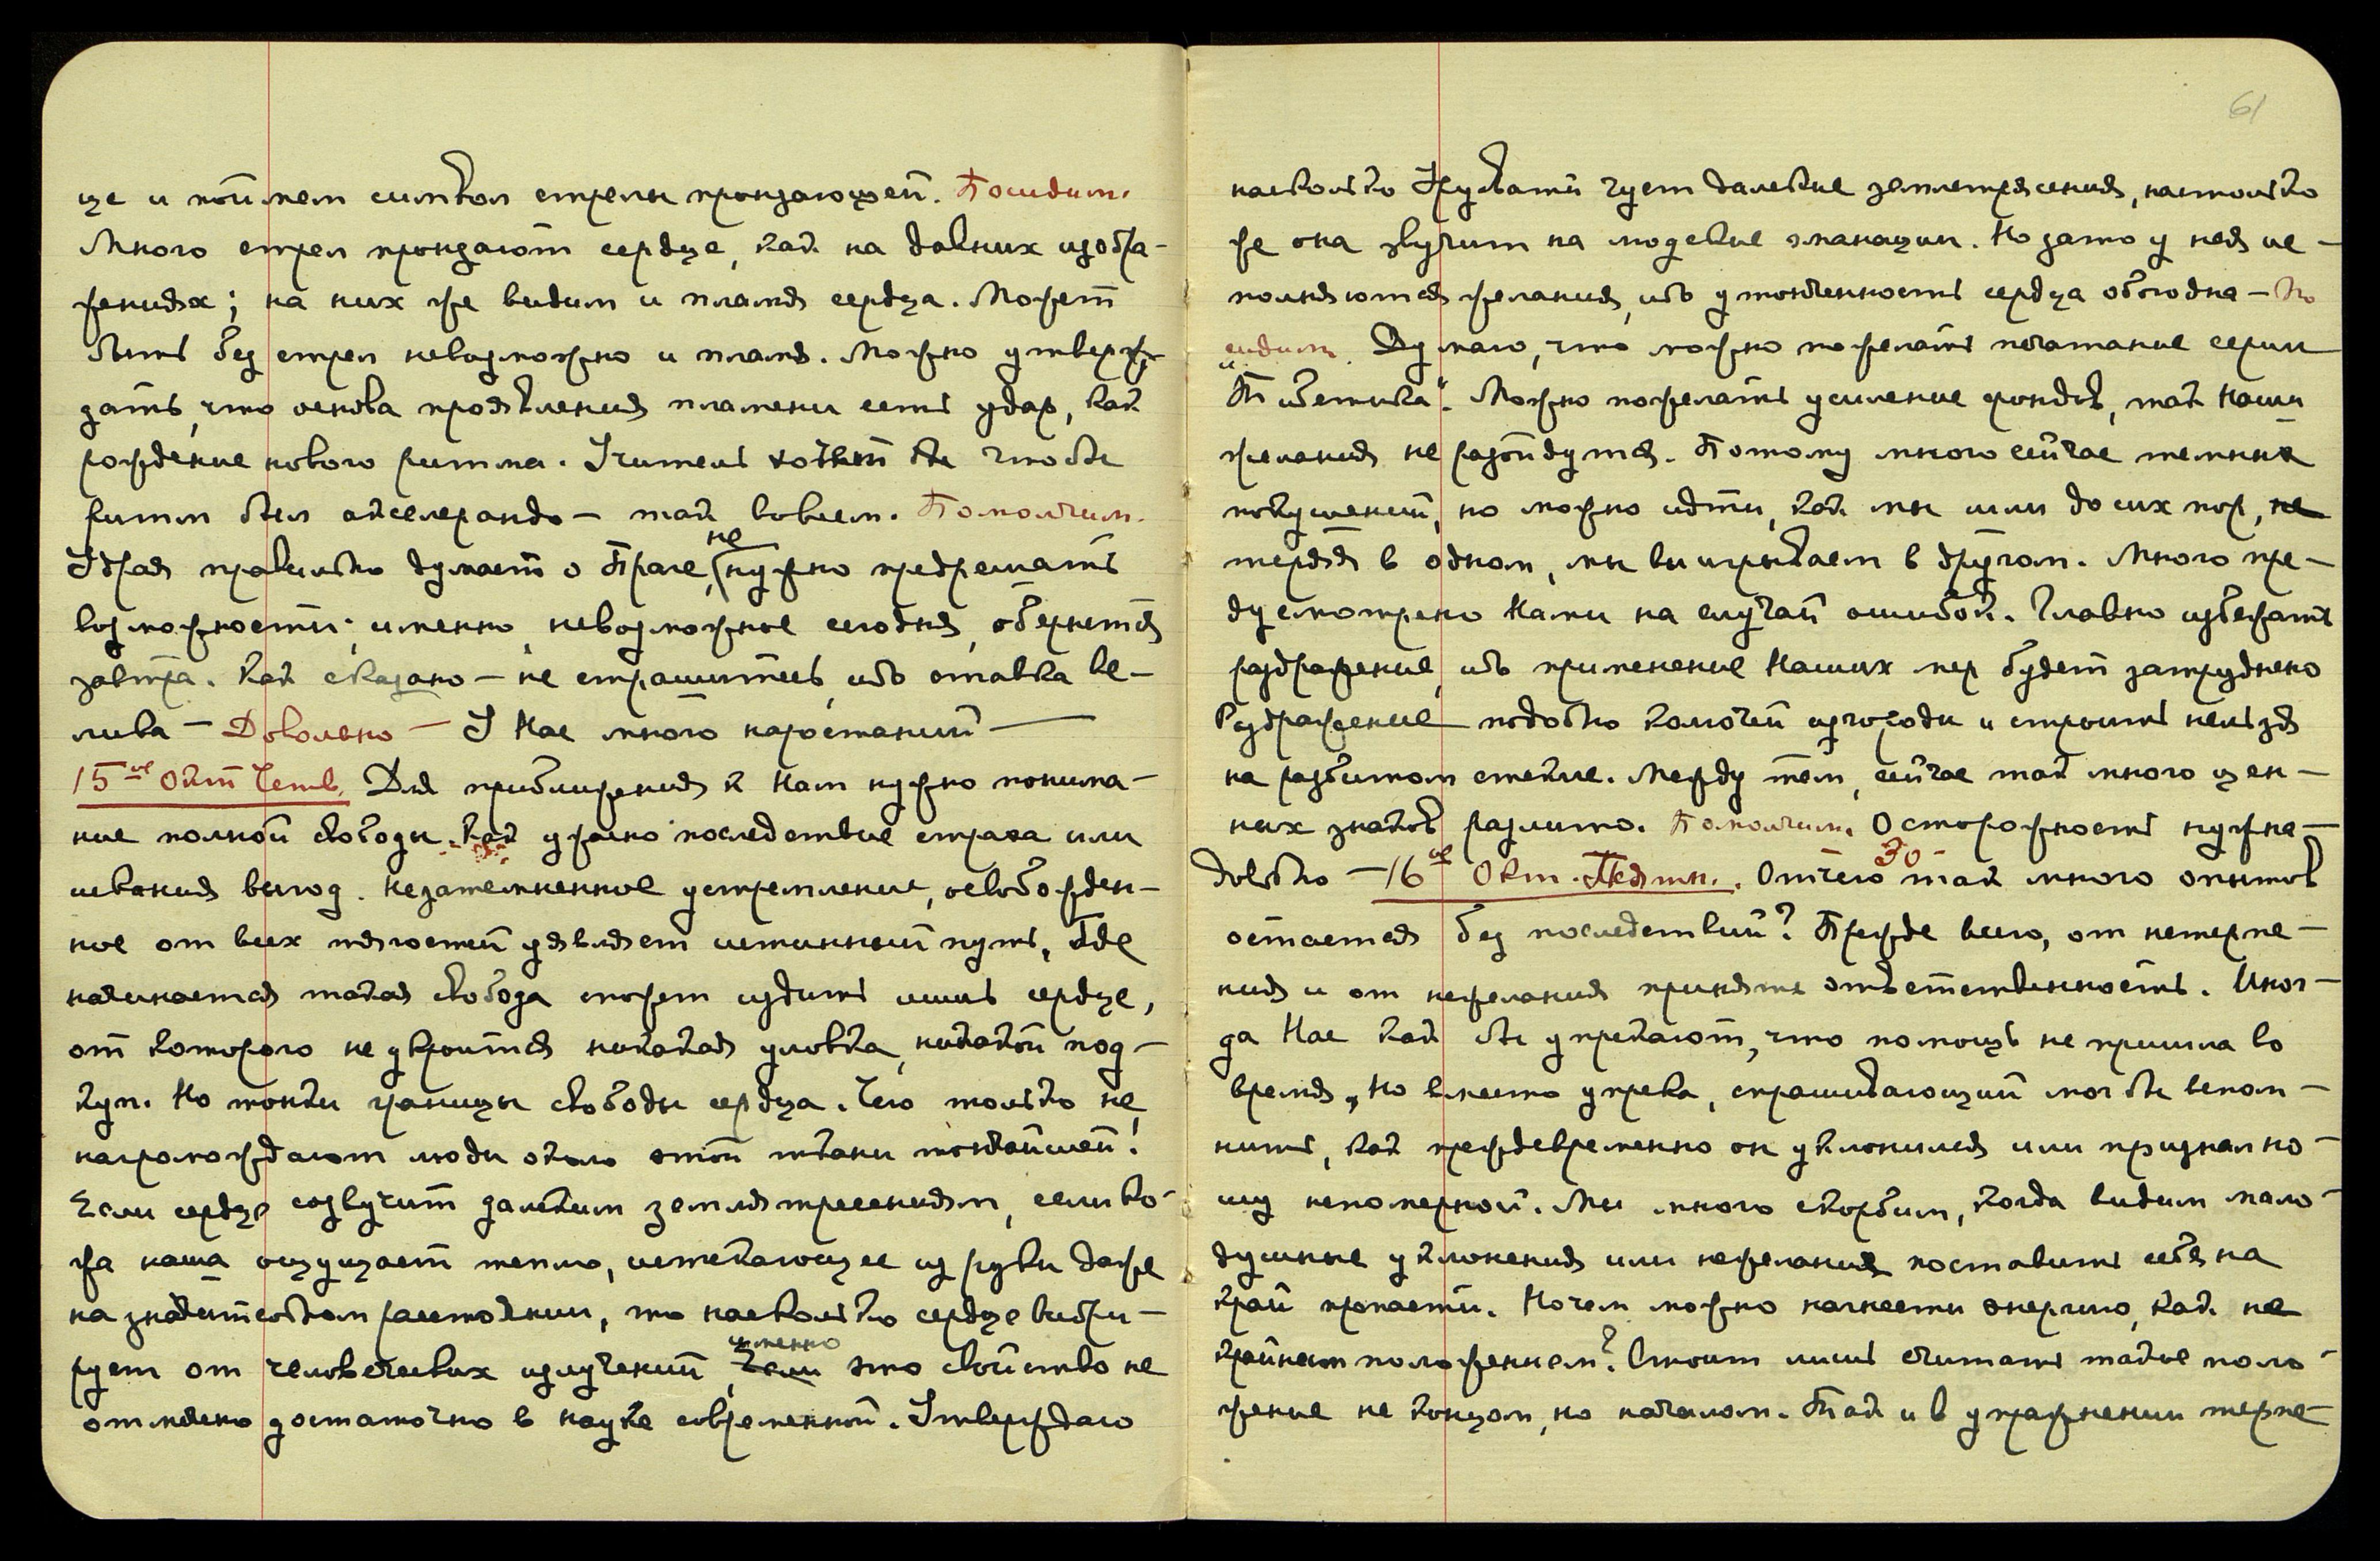 це и поймем символ стрелы пронзающей. Посидим.
Много стрел пронзают сердце, как на давних изобра-
жениях; на них же видим и пламя сердца. Может
быть без стрел невозможно и пламя. Можно утверж-
дать, что основа проявления пламени есть удар, как
рождение нового ритма. Учитель хочет бы чтобы
ритм был акселерандо — так во всем. Помолчим.
Удрая правильно думает о Праге, не нужно предрешать
возможности; именно, невозможное сегодня, обернется
завтра. Как сказано — не страшитесь, ибо ставка ве-
лика — Довольно — У Нас много нарастаний —
15ое Окт Четв. Для приближения к Нам нужно понима-
ние полной свободы. Как ужасно последствие страха или
искания выгод. Незатемненное устремление, освобожден-
ное от всех тягостей являет истинный путь. Где
начинается такая свобода может судить лишь сердце,
от которого не укроится никакая уловка, никакой под-
куп. Но тонки границы свободы сердца. Чего только не
нагромождают люди около этой ткани тончайшей!
Если сердце созвучит далеким землятресениям, если ко-
жа наша ощущает тепло, истекающее из руки даже
на значительном расстоянии, то насколько сердце вибри-
рует от человеческих излучений, именно это свойство не
отмечено достаточно в науке современной. Утверждаю
61
насколько Урувати чует далекие землетрясения, настолько
же она звучит на людские эманации. Но зато у нея ис-
полняются желания, ибо утонченность сердца обоюдна — По
сидим. Думаю, что можно пожелать печатание серии
„Тибетика“. Можно пожелать усиление фондов, так Наши
желания не разойдутся. Потому много сейчас темных
покушений, но можно идти, как мы шли до сих пор, не
теряя в одном, мы выигрываем в другом. Много пре-
дусмотрено Нами на случай ошибок. Главно избежать
раздражение, ибо применение Наших мер будет затруднено
Раздражение подобно колючей изгороди и строить нельзя
на разбитом стекле. Между тем, сейчас так много цен-
ных знаков разлито. Помолчим. Осторожность нужна —
довольно — 16ое Окт. Пятн. 30 Отчего так много опытов
остается без последствий? Прежде всего, от нетерпе-
ния и от нежелания принять ответственность. Иног-
да Нас как бы упрекают, что помощь не пришла во
время, но вместо упрека, спрашивающий мог бы вспом-
нить, как преждевременно он уклонился или признал но-
шу непомерной. Мы много скорбим, когда видим мало-
душные уклонения или нежелания поставить себя на
край пропасти. Но чем можно нагнести энергию, как не
крайнем положением? Стоит лишь считать такое поло-
жение не концом, но началом. Так и в упражнении терпе-